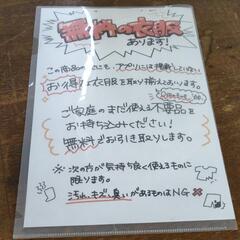 無料の衣服
あります!
この商品の他にも、アプリには掲載していない
お得な衣服を取り揃えております。
ご家庭のまだ使える不要品を
お持ち込みください!
無料でお引き取りします。
※次の方が気持ち良く使えるものに
限ります。
汚れ、キズ、臭いがあるものはNG